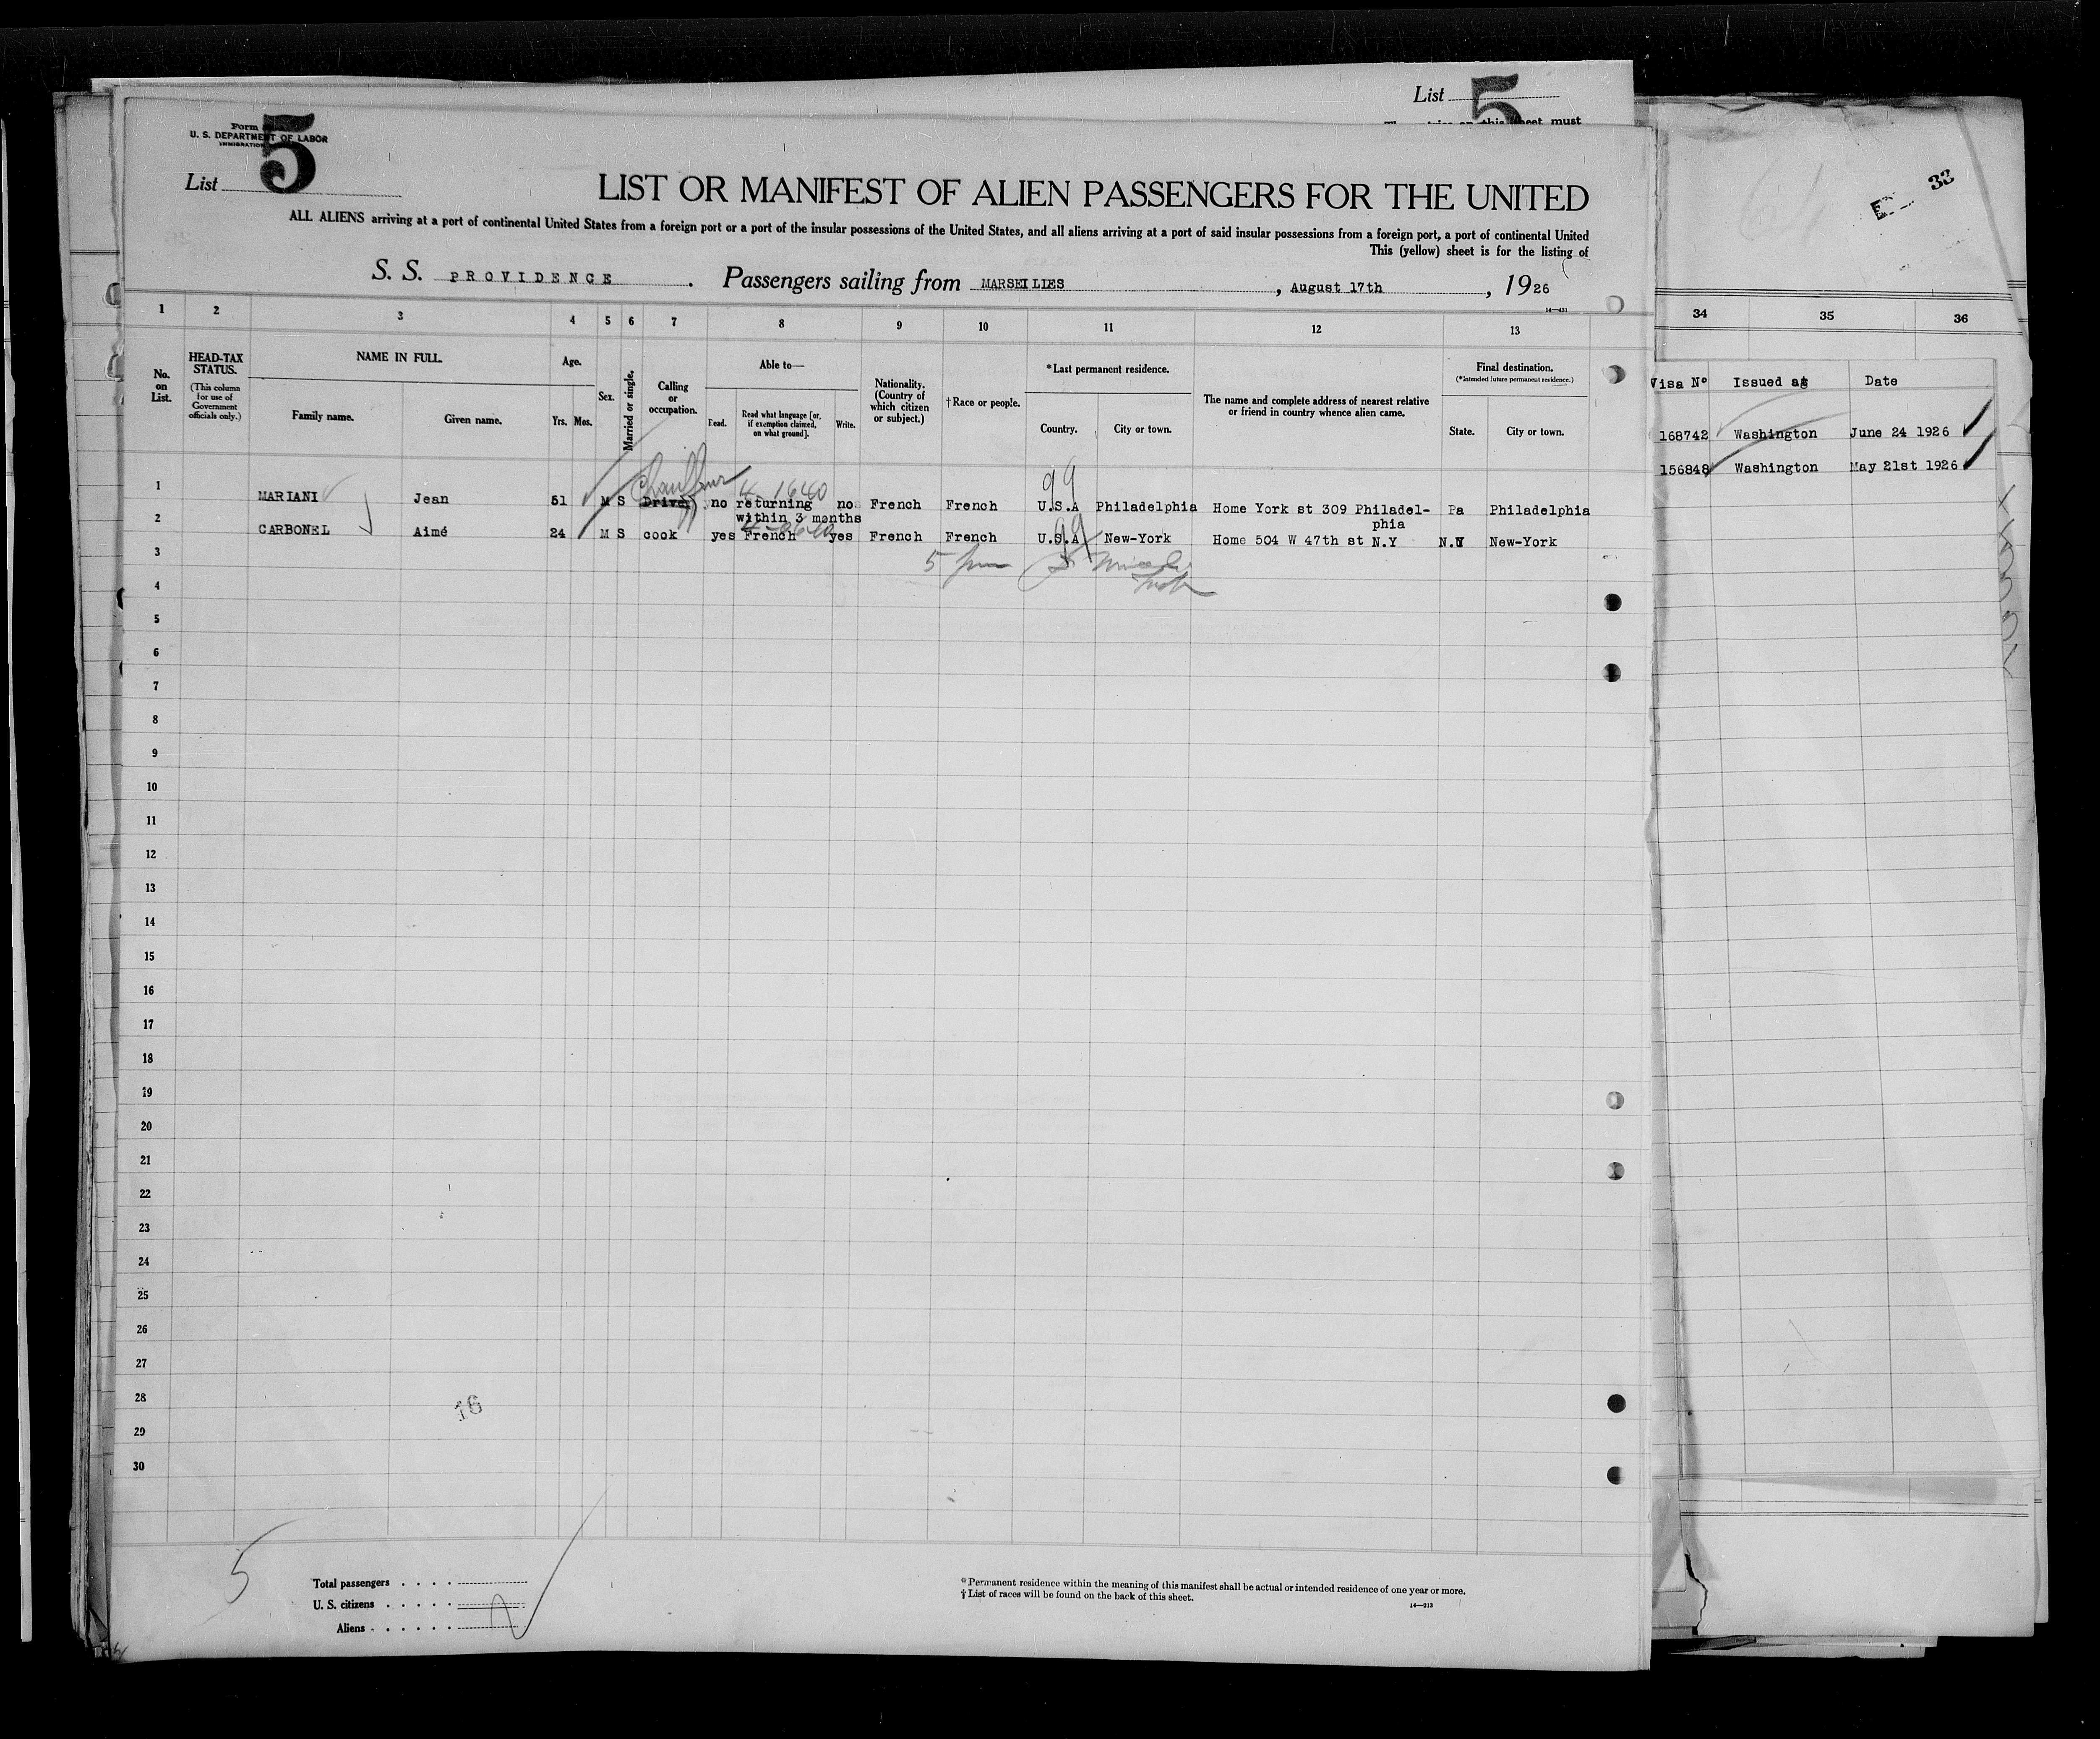 List 5
on this sheet must
Form
U. S. DEPARTMENT OF LABOR
IMMIGRATION
List 5
LIST OR MANIFEST OF ALIEN PASSENGERS FOR THE UNITED
ALL ALIENS arriving at a port of continental United States from a foreign port or a port of the insular possessions of the United States, and all aliens arriving at a port of said insular possessions from a foreign port, a port of continental United
This (yellow) sheet is for the listing of
S. S. PROVIDENCE. Passengers sailing from MARSEILLES, August 17th, 1926
14—431
1 2 3 4 5 6 7 8 9 10 11 12 13
No. on List.
HEAD-TAX STATUS.
(This column for use of Government officials only.)
NAME IN FULL.
Family name. Given name.
Age.
Yrs. Mos.
Sex.
Married or single.
Calling or occupation.
Able to—
Read. Read what language [or, if exemption claimed, on what ground]. Write.
Nationality. (Country of which citizen or subject.)
†Race or people.
*Last permanent residence.
Country. City or town.
The name and complete address of nearest relative or friend in country whence alien came.
Final destination.
(*Intended future permanent residence.)
State. City or town.
Chauffeur 4-1640 99
1 MARIANI Jean 51 M S Driver no returning no French French U.S.A Philadelphia Home York st 309 Philadel- Pa Philadelphia
within 3 months phia
99
2 CARBONEL Aimé 24 M S cook yes French yes French French U.S.A New-York Home 504 W 47th st N.Y N.Y New-York
3
4
5
6
7
8
9
10
11
12
13
14
15
16
17
18
19
20
21
22
23
24
25
26
27
28
16
29
30
5
Total passengers
U. S. citizens
Aliens 2
*Permanent residence within the meaning of this manifest shall be actual or intended residence of one year or more.
†List of races will be found on the back of this sheet.
14—213
33
34 35 36
Visa Nº Issued at Date
168742 Washington June 24 1926
156848 Washington May 21st 1926